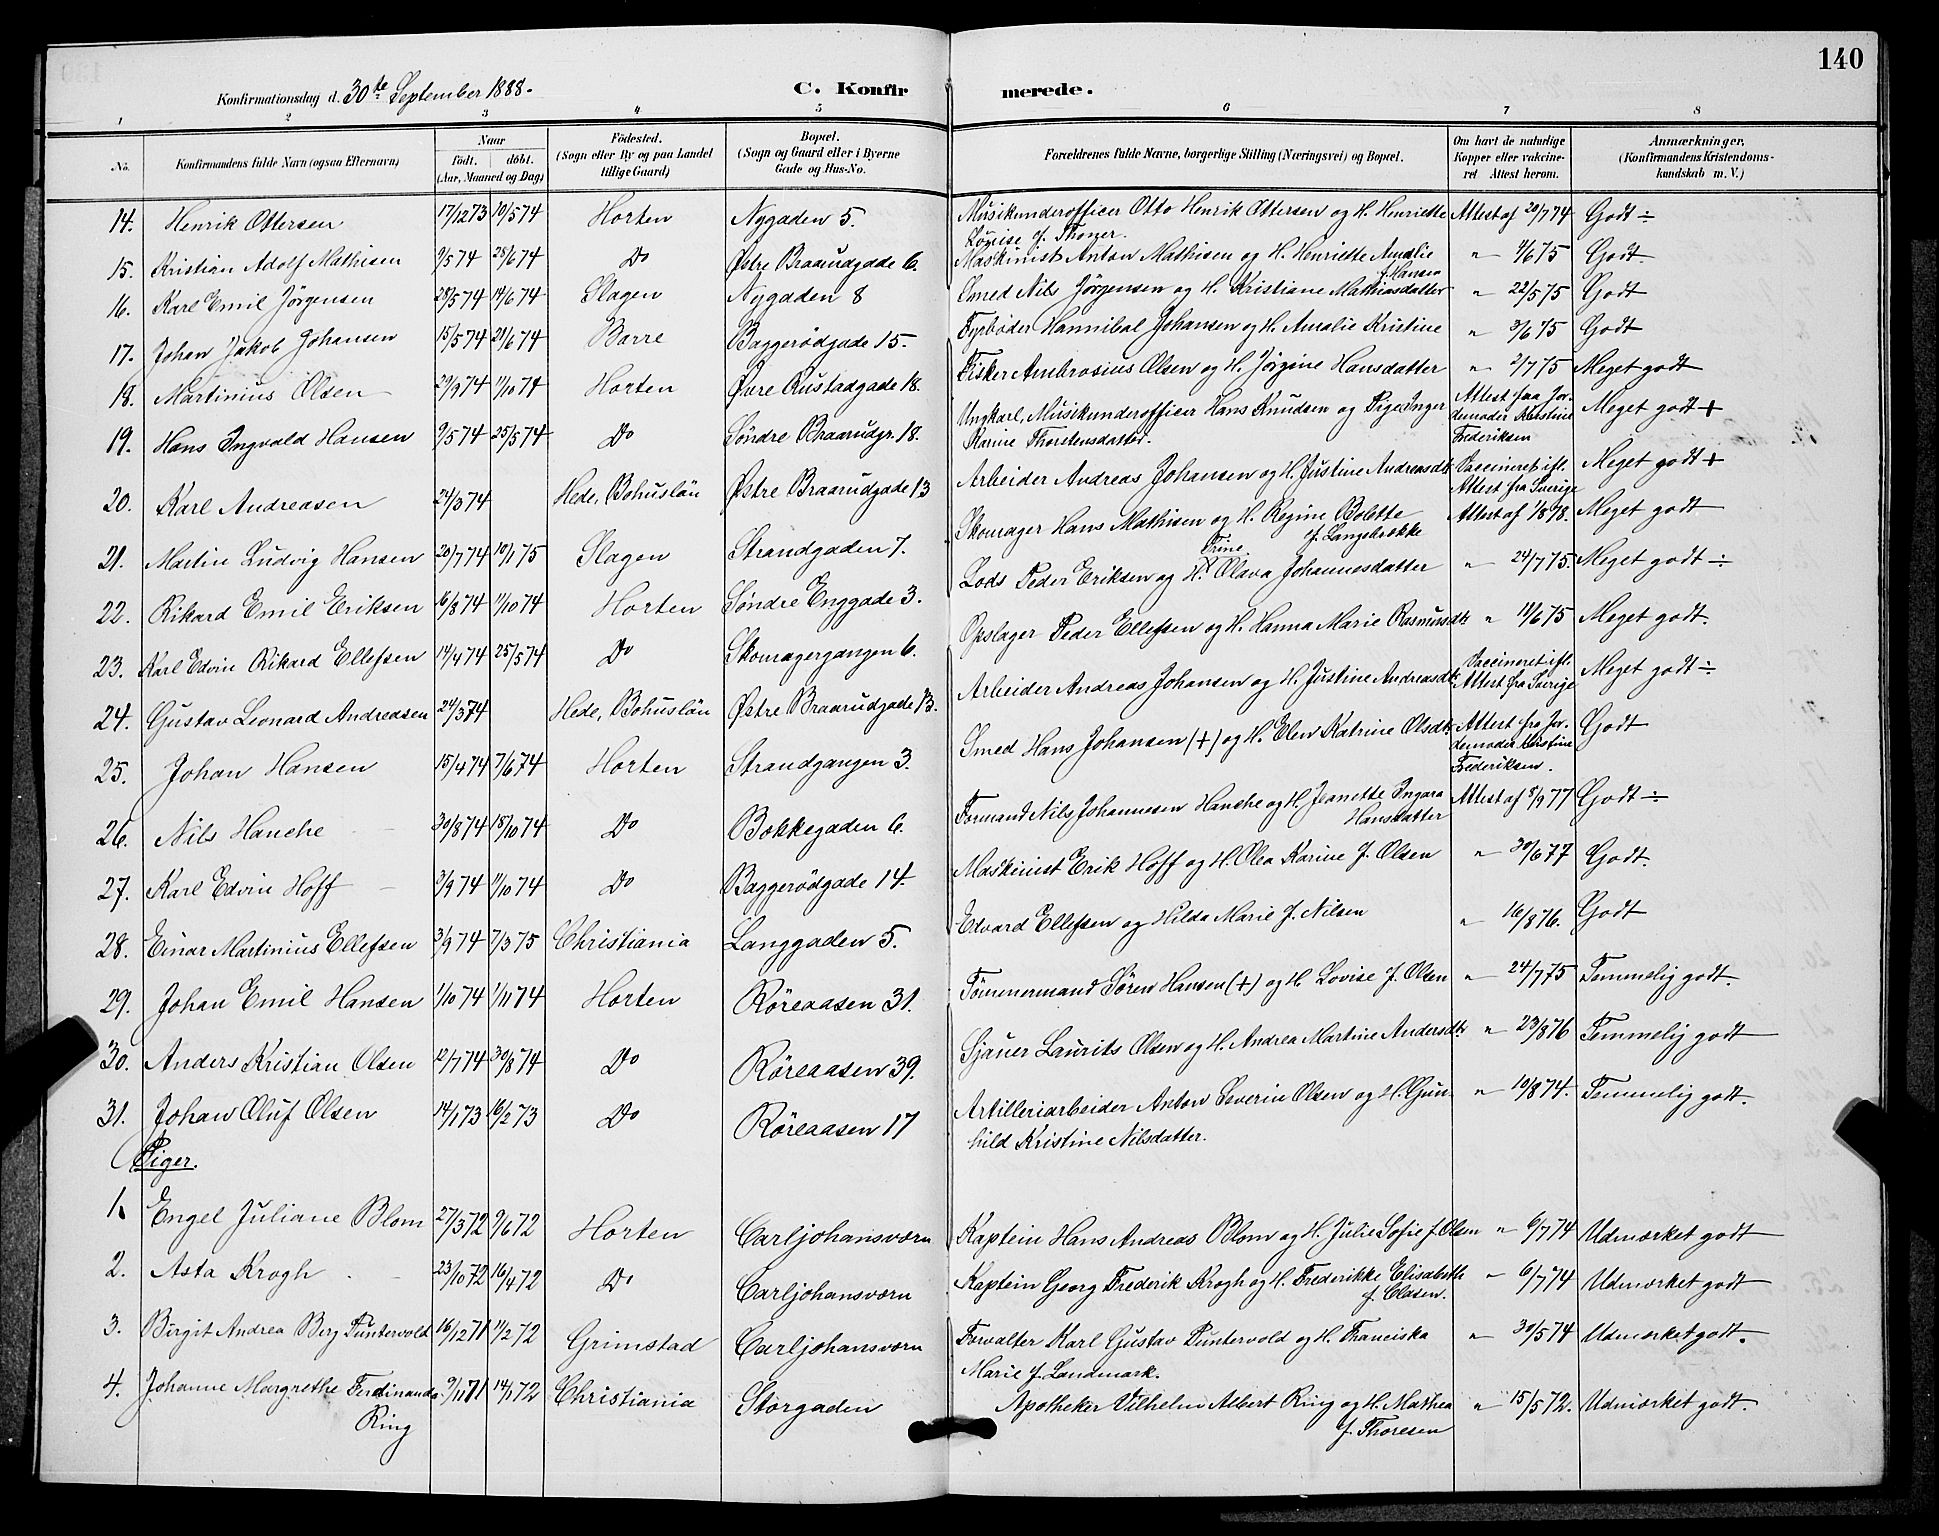 140
Konfirmationsdag d. 30te September 1888.
C. Konfirmerede.
1 2 3 4 5 6 7 8
No. Konfirmandens fulde Navn (ogsaa Efternavn) Naar født. døbt. (Aar, Maaned og Dag) Fødested. (Sogn eller By og paa Landet tillige Gaard) Bopæl. (Sogn og Gaard eller i Byerne Gade og Hus-No. Forældrenes fulde Navne, borgerlige Stilling (Næringsvei) og Bopæl. Om havt de naturlige Kopper eller vakcineret Attest herom. Anmærkninger. (Konfirmandens Kristendomskundskab m. V.)
14. Henrik Ottersen 17/12 73 10/5 74 Horten Nygaden 5. Musikunderofficer Otto Henrik Ottersen og H. Henriette Lovise f. Attest af 20/7 74 Godt ÷
15. Kristian Adolf Mathisen 9/5 74 28/6 74 Do Østre Braarudgade 6. Maskinist Anton Mathisen og H. Henriette Amalie f. Hansen " 4/6 75 Godt.
16. Karl Emil Jörgensen 28/5 74 14/6 74 Slagen Nygaden 8 Smed Nils Jörgensen og H. Kristiane Mathiasdatter " 22/5 75 Godt
17. Johan Jakob Johansen 15/5 74 21/6 74 Borre Baggerödgade 15. Fyrbøder Hannibal Johansen og H. Amalie Kristine " 3/6 75 Godt
18. Martinius Olsen 29/9 74 11/10 74 Horten Øvre Rustadgade 18. Fisker Ambrosius Olsen og H. Jörgine Hansdatter " 2/7 75 Meget godt
19. Hans Ingvald Hansen 9/5 74 25/5 74 Do Söndre Braarudgr. 18. Ungkarl, Musikunderofficer Hans Knudsen og Pige Inger Karine Thorstensdatter. Attest fra Jordemoder Kerstine Frederiksen Meget godt +
20. Karl Andreasen 24/3 74 Hede, Bohuslän Østre Braarudgade 13 Arbeider Andreas Johansen og H. Justine Andreasdt. Vaccineret ifl. Attest fra Sverige Meget godt +
21. Martin Ludvig Hansen 20/7 74 10/1 75 Slagen Strandgaden 7. Skomager Hans Mathisen og H. Regine Bolette f. Langebrekke Attest af 1/8 78. Meget godt
22. Rikard Emil Eriksen 16/8 74 11/10 74 Horten Söndre Enggade 3. Lods Peder Eriksen og H. Trine Olava Johannesdatter " 24/7 75. Meget godt ÷
23. Karl Edvin Rikard Ellefsen 14/4 74 25/5 74 Do Skomagergangen 6. Opslager Peder Ellefsen og H. Hanna Marie Rasmusdt. " 11/6 75 Meget godt.
24. Gustav Leonard Andreasen 24/3 74 Hede, Bohuslän Østre Braarudgade 13. Arbeider Andreas Johansen og H. Justine Andreasdt. Vaccineret ifl. Attest fra Sverige Meget godt ÷
25. Johan Hansen 15/4 74 7/6 74 Horten Strandgangen 3. Smed Hans Johansen (+) og H. Elen Katrine Olsdt. Attest fra Jordemoder Kerstine Frederiksen. Godt
26. Nils Hanche 30/8 74 18/10 74 Do Bokkegaden 6. Formand Nils Johannesen Hanche og H. Jeanette Ingara Hansdatter Attest af 8/9 77 Godt ÷
27. Karl Edvin Hoff 3/9 74 11/10 74 Do Baggerödgade 14. Maskinist Erik Hoff og H. Olea Karine f. Olsen " 30/6 77 Godt.
28. Einar Martinius Ellefsen 3/9 74 7/3 75 Christiania Langgaden 5. Edvard Ellefsen og Hilda Marie f. Nilsen " 16/8 76. Godt
29. Johan Emil Hansen 1/10 74 1/11 74 Horten Röreaasen 31. Tömmermand Sören Hansen (+) og H. Lovise f. Olsen " 24/7 75 Temmelig godt.
30. Anders Kristian Olsen 12/7 74 30/8 74 Do Röreaasen 39. Sjauer Laurits Olsen og H. Andrea Martine Andersdt. " 23/8 76 Temmelig godt
31. Johan Oluf Olsen 14/1 73 16/2 73 Do Röreaasen 17 Artilleriarbeider Anton Severin Olsen og H. Gunhild Kristine Nilsdatter. " 10/8 74. Temmelig godt.
Piger.
1. Engel Juliane Blom 27/3 72 9/6 72 Horten Carljohansværn Kaptein Hans Andreas Blom og H. Julie Sofie f. Olsen " 6/7 74 Udmærket godt
2. Asta Krogh 23/10 72 16/4 72 Do Carljohansværn Kaptein Georg Frederik Krogh og H. Frederikke Elisabeth f. Clasen. " 6/7 74 Udmærket godt
3. Birgit Andrea Berg Puntervold 16/12 71 11/2 72 Grimstad Carljohansværn Forvalter Karl Gustav Puntervold og H. Franciska Marie f. Landmark. " 30/5 74 Udmærket godt.
4. Johanne Margrethe Ferdinanda Ring 9/11 71 14/1 72 Christiania Storgaden Apotheker Vilhelm Albert Ring og H. Mathea f. Thoresen " 15/5 72. Udmærket godt.